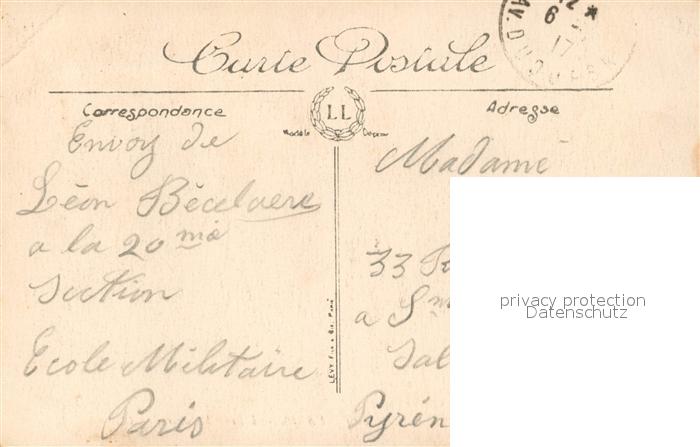 Carte Postale
Correspondance
Adresse
LL
Modèle Déposé
Envoy de
Léon Bécelaere
a la 20 me
Section
Ecole Militaire
Paris
LÉVY Fils & Cie, Paris
Madame
33
a S
Sal
Pyrén
privacy protection
Datenschutz
6
17